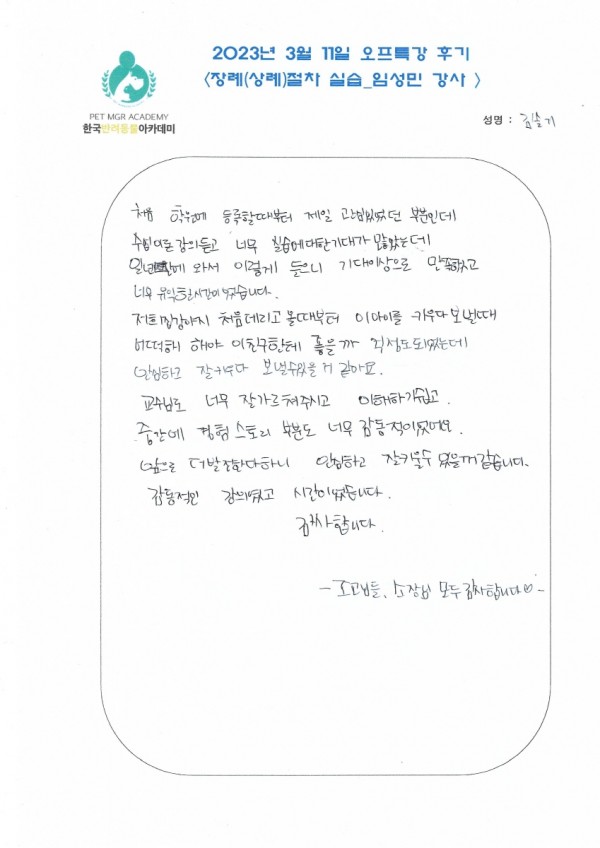 2023년 3월 11일 오프특강 후기
<장례(상례)절차 실습_임성민 강사 >
PET MGR ACADEMY
한국반려동물아카데미
성명 : 김슬기
처음 학원에 등록할때부터 제일 관심있었던 부분인데
수업이론 강의듣고 너무 실습에대한기대가 많았는데
와서 이렇게 들으니 기대이상으로 만족했고
너무 유익한시간이었습니다.
저희집강아지 처음데리고 올때부터 이아이를 키우다 보낼때
어떠하게 해야 이친구한테 좋을까 걱정도되었는데
안심하고 잘키우다 보낼수있을거 같아요.
교수님도 너무 잘가르쳐주시고 이해하기쉽고.
중간에 경험 스토리 부분도 너무 감동적이었어요.
앞으로 더발전한다하니 안심하고 잘키울수 있을꺼같습니다.
감동적인 강의였고 시간이었습니다.
감사합니다.
- 조교님들, 소장님 모두감사합니다♡ -